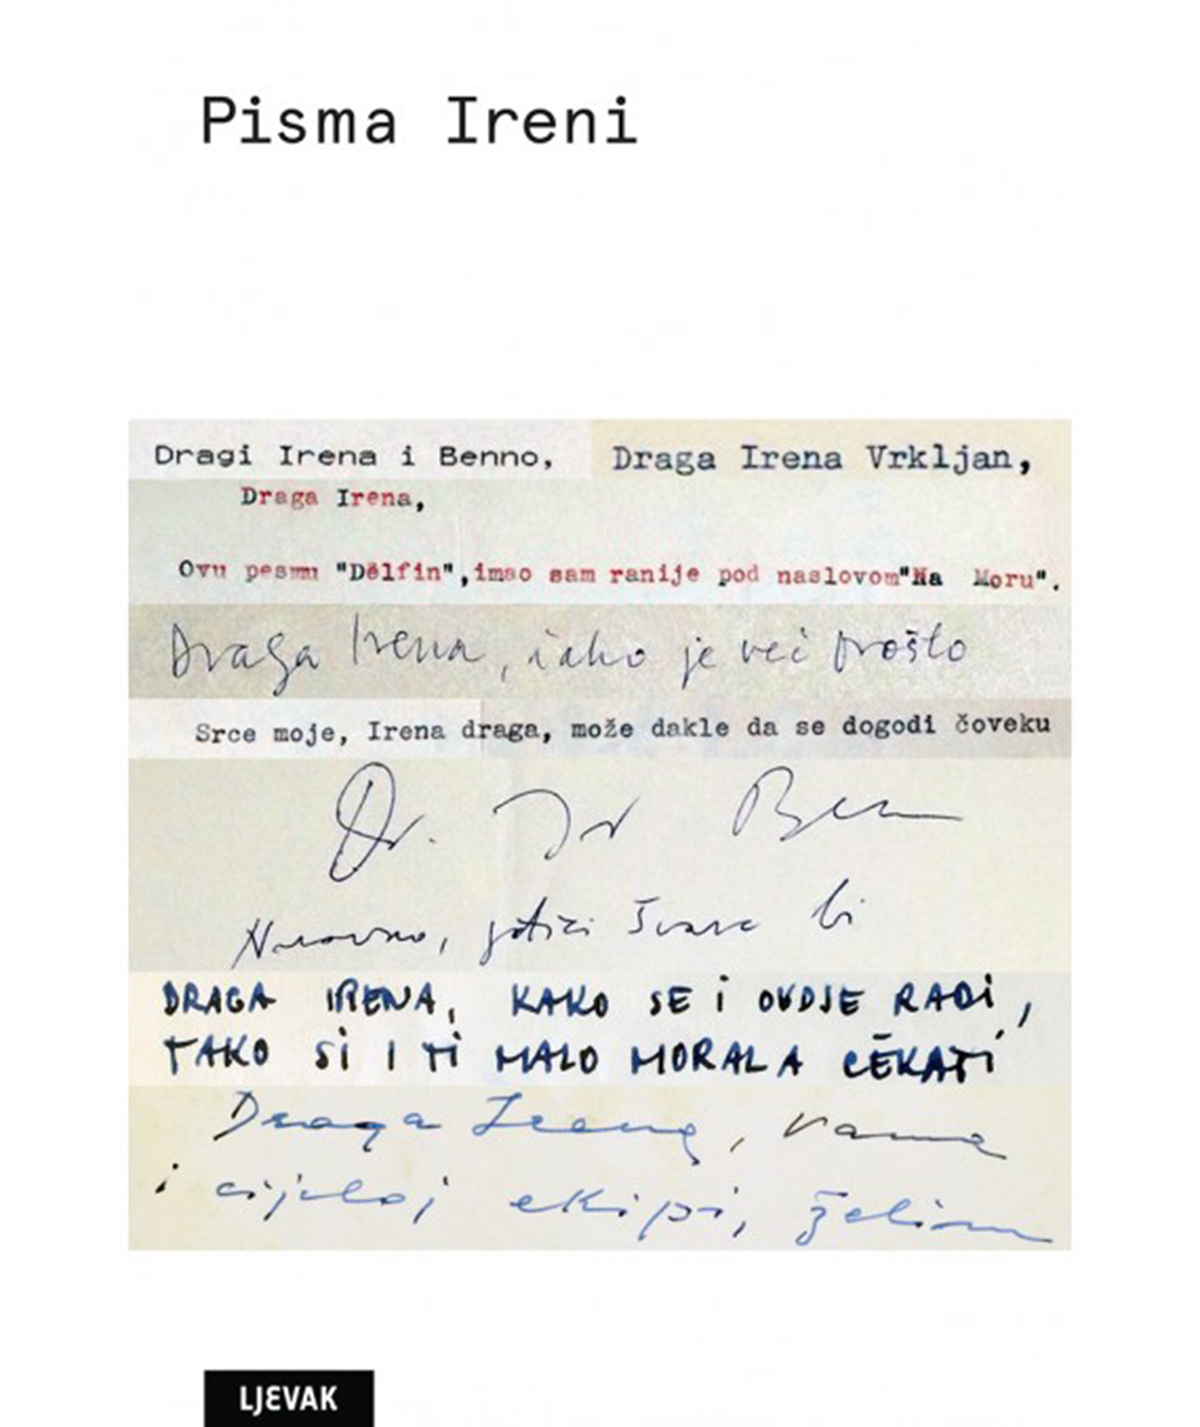 Pisma Ireni
Dragi Irena i Benno,
Draga Irena Vrkljan,
Draga Irena,
Ovu pesmu "Delfin",imao sam ranije pod naslovom"Na Moru".
Draga Irena, iako je već prošlo
Srce moje, Irena draga, može dakle da se dogodi čoveku
Dr. Ir Ben
bi
DRAGA IRENA, KAKO SE i OVDJE RADi,
TAKO Si I Ti MALO MORALA ČEKATi
Draga Irena, Vama
i cijeloj ekipi, želim
LJEVAK